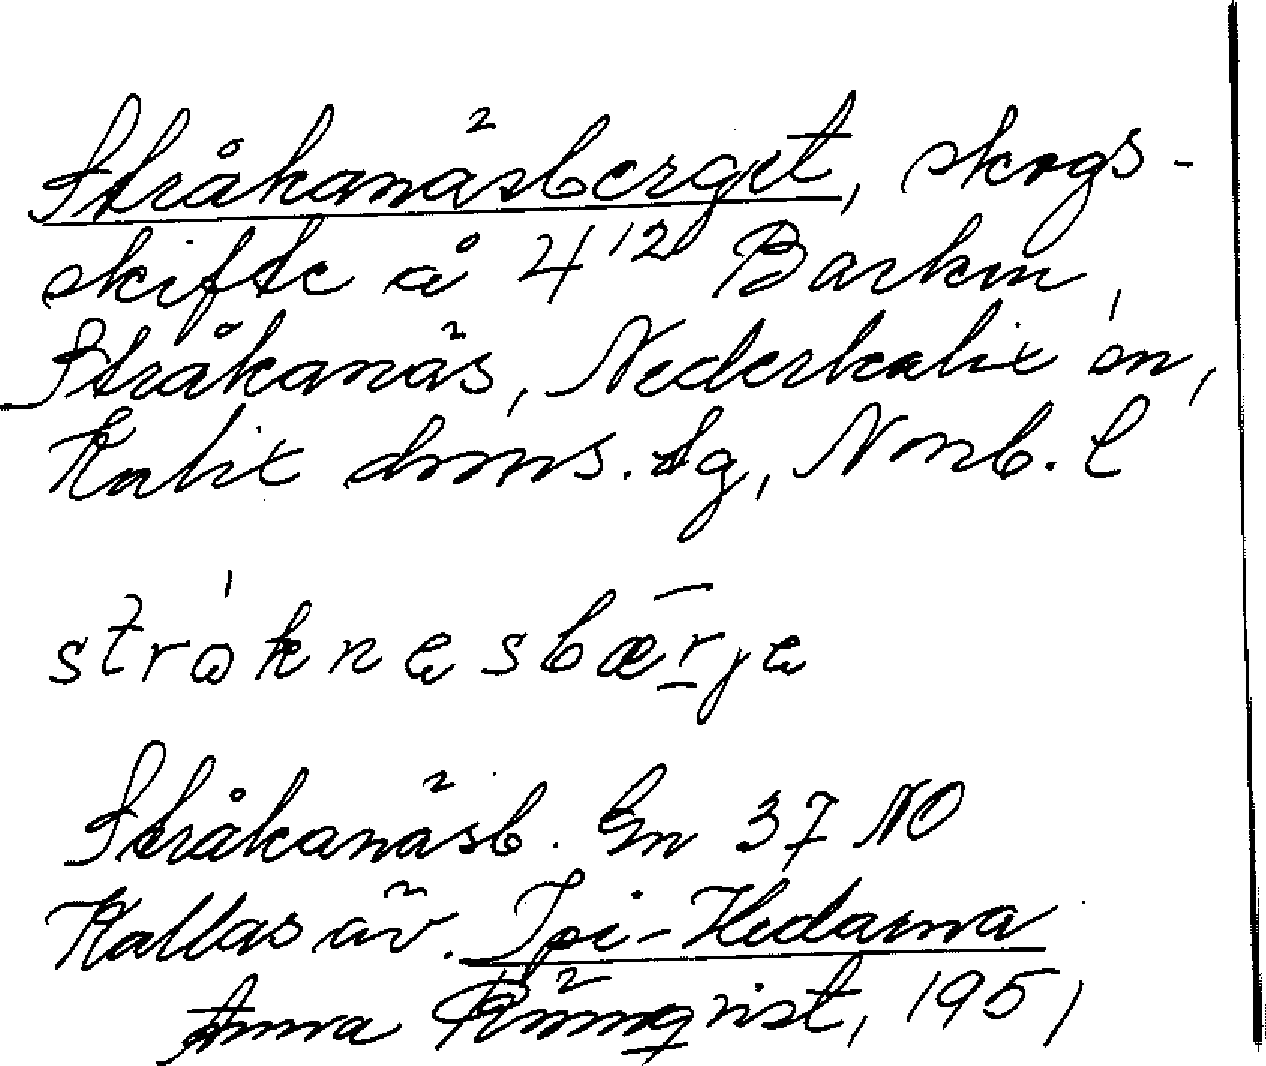 Stråkanäsberget, skogs-
skifte å 4¹² Barken,
Stråkanäs, Nederkalix sn,
Kalix doms. sg, Norrb. l
stråknesbærje
Stråkanäsb. Gn 37 NO
Kallas äv. Ipi-Hedarna
Anna Rönnqvist, 1951